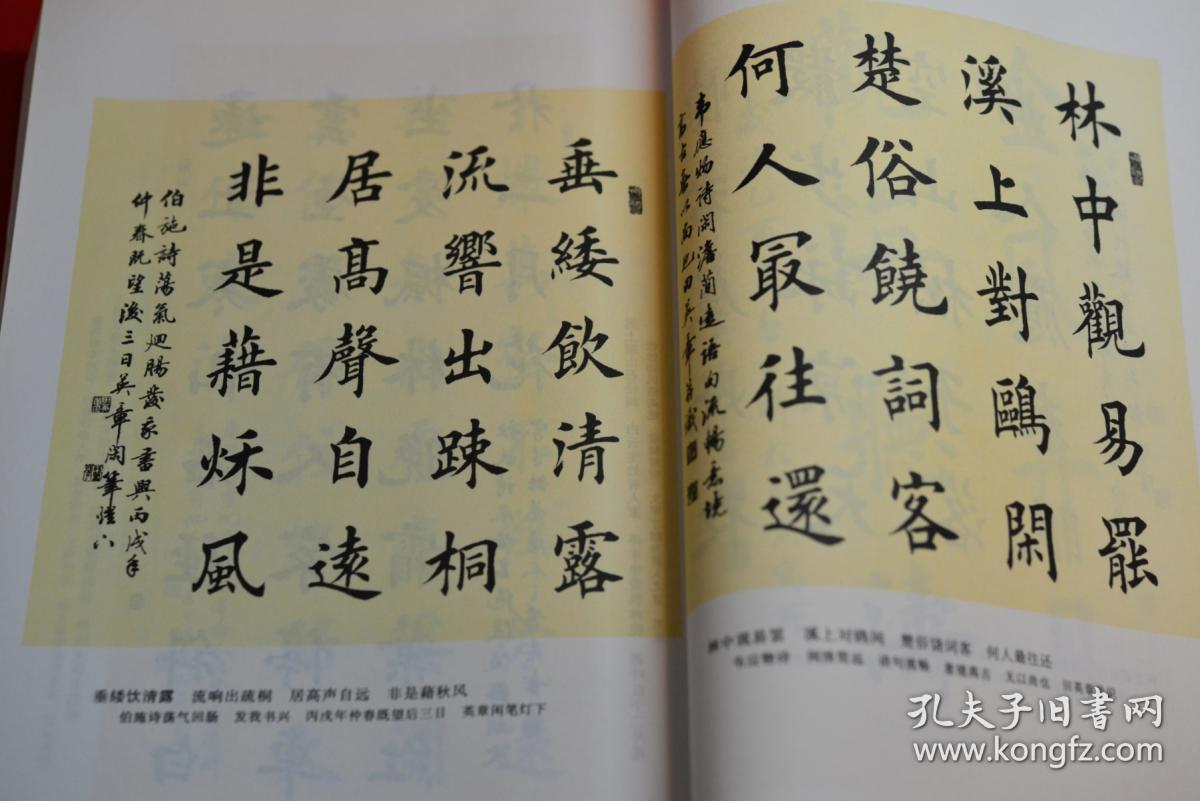 林中觀易罷
溪上對鷗閑
楚俗饒詞客
何人最往還
林中观易罢 溪上对鸥闲 楚俗饶词客 何人最往还
韦应物诗 闲澹简远 语句流畅 意境高古
垂緌飲清露
流響出踈桐
居高聲自遠
非是藉秌風
伯施詩蕩氣迴腸發我書興丙戌年
仲春既望後三日英章閑筆燈下
垂矮饮清露 流响出疏桐 居高声自远 非是藉秋风
伯施诗荡气回肠 发我书兴 丙戌年仲春既望后三日 英章闲笔灯下
孔夫子旧书网
www.kongfz.com